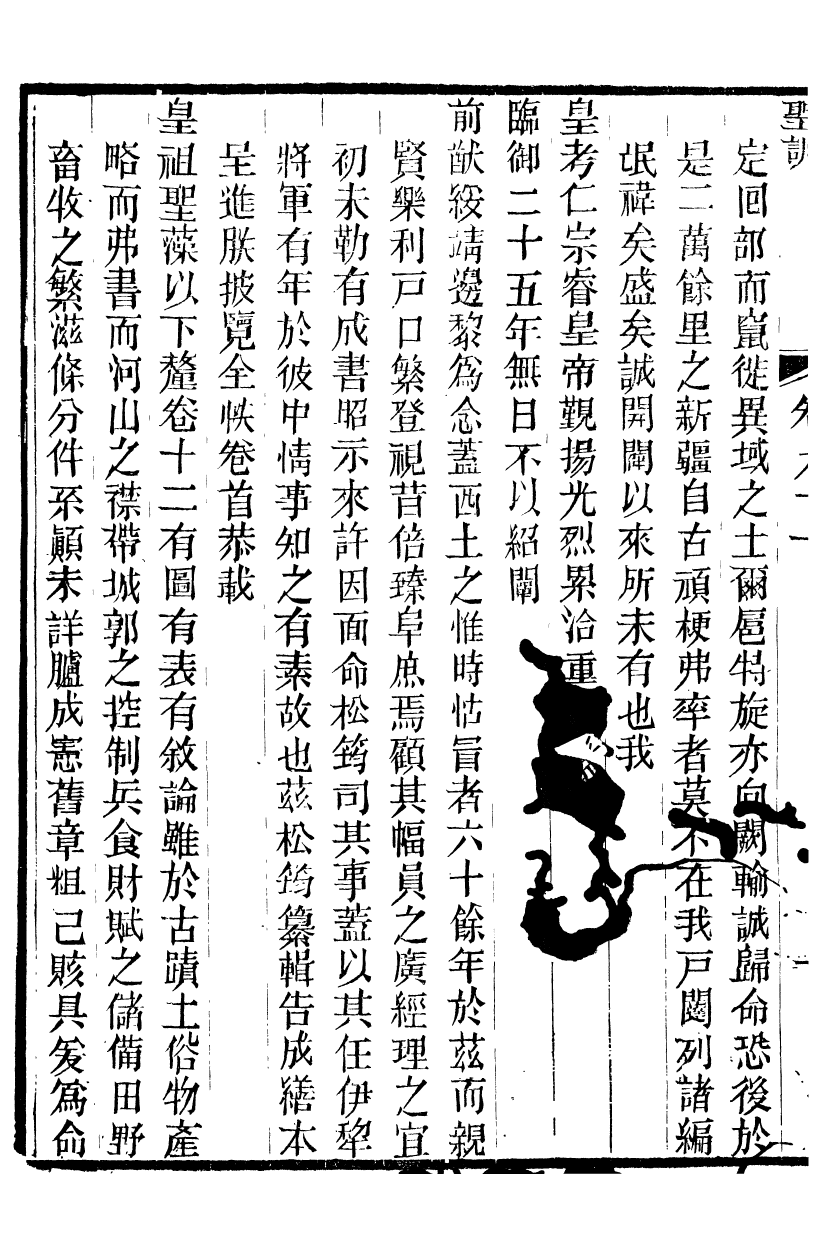 聖訓
定回部而竄徙異域之土爾扈特旋亦向闕輸誠歸命恐後於
是二萬餘里之新疆自古頑梗弗率者莫不在我戸闥列諸編
氓禕矣盛矣誠開闢以來所未有也我
皇考仁宗睿皇帝覲揚光烈累洽重
臨御二十五年無日不以紹闡
前猷綏靖邊黎爲念蓋西土之惟時怙冒者六十餘年於茲而親
賢樂利戸口繁登視昔倍臻阜庶焉顧其幅員之廣經理之宜
初未勒有成書昭示來許因面命松筠司其事蓋以其任伊犂
將軍有年於彼中情事知之有素故也茲松筠纂輯告成繕本
呈進朕披覽全帙卷首恭載
皇祖聖藻以下釐卷十二有圖有表有敘論雖於古蹟土俗物產
略而弗書而河山之襟帶城郭之控制兵食財賦之儲備田野
畜牧之繁滋條分件系顚末詳臚成憲舊章粗己賅具爰爲命